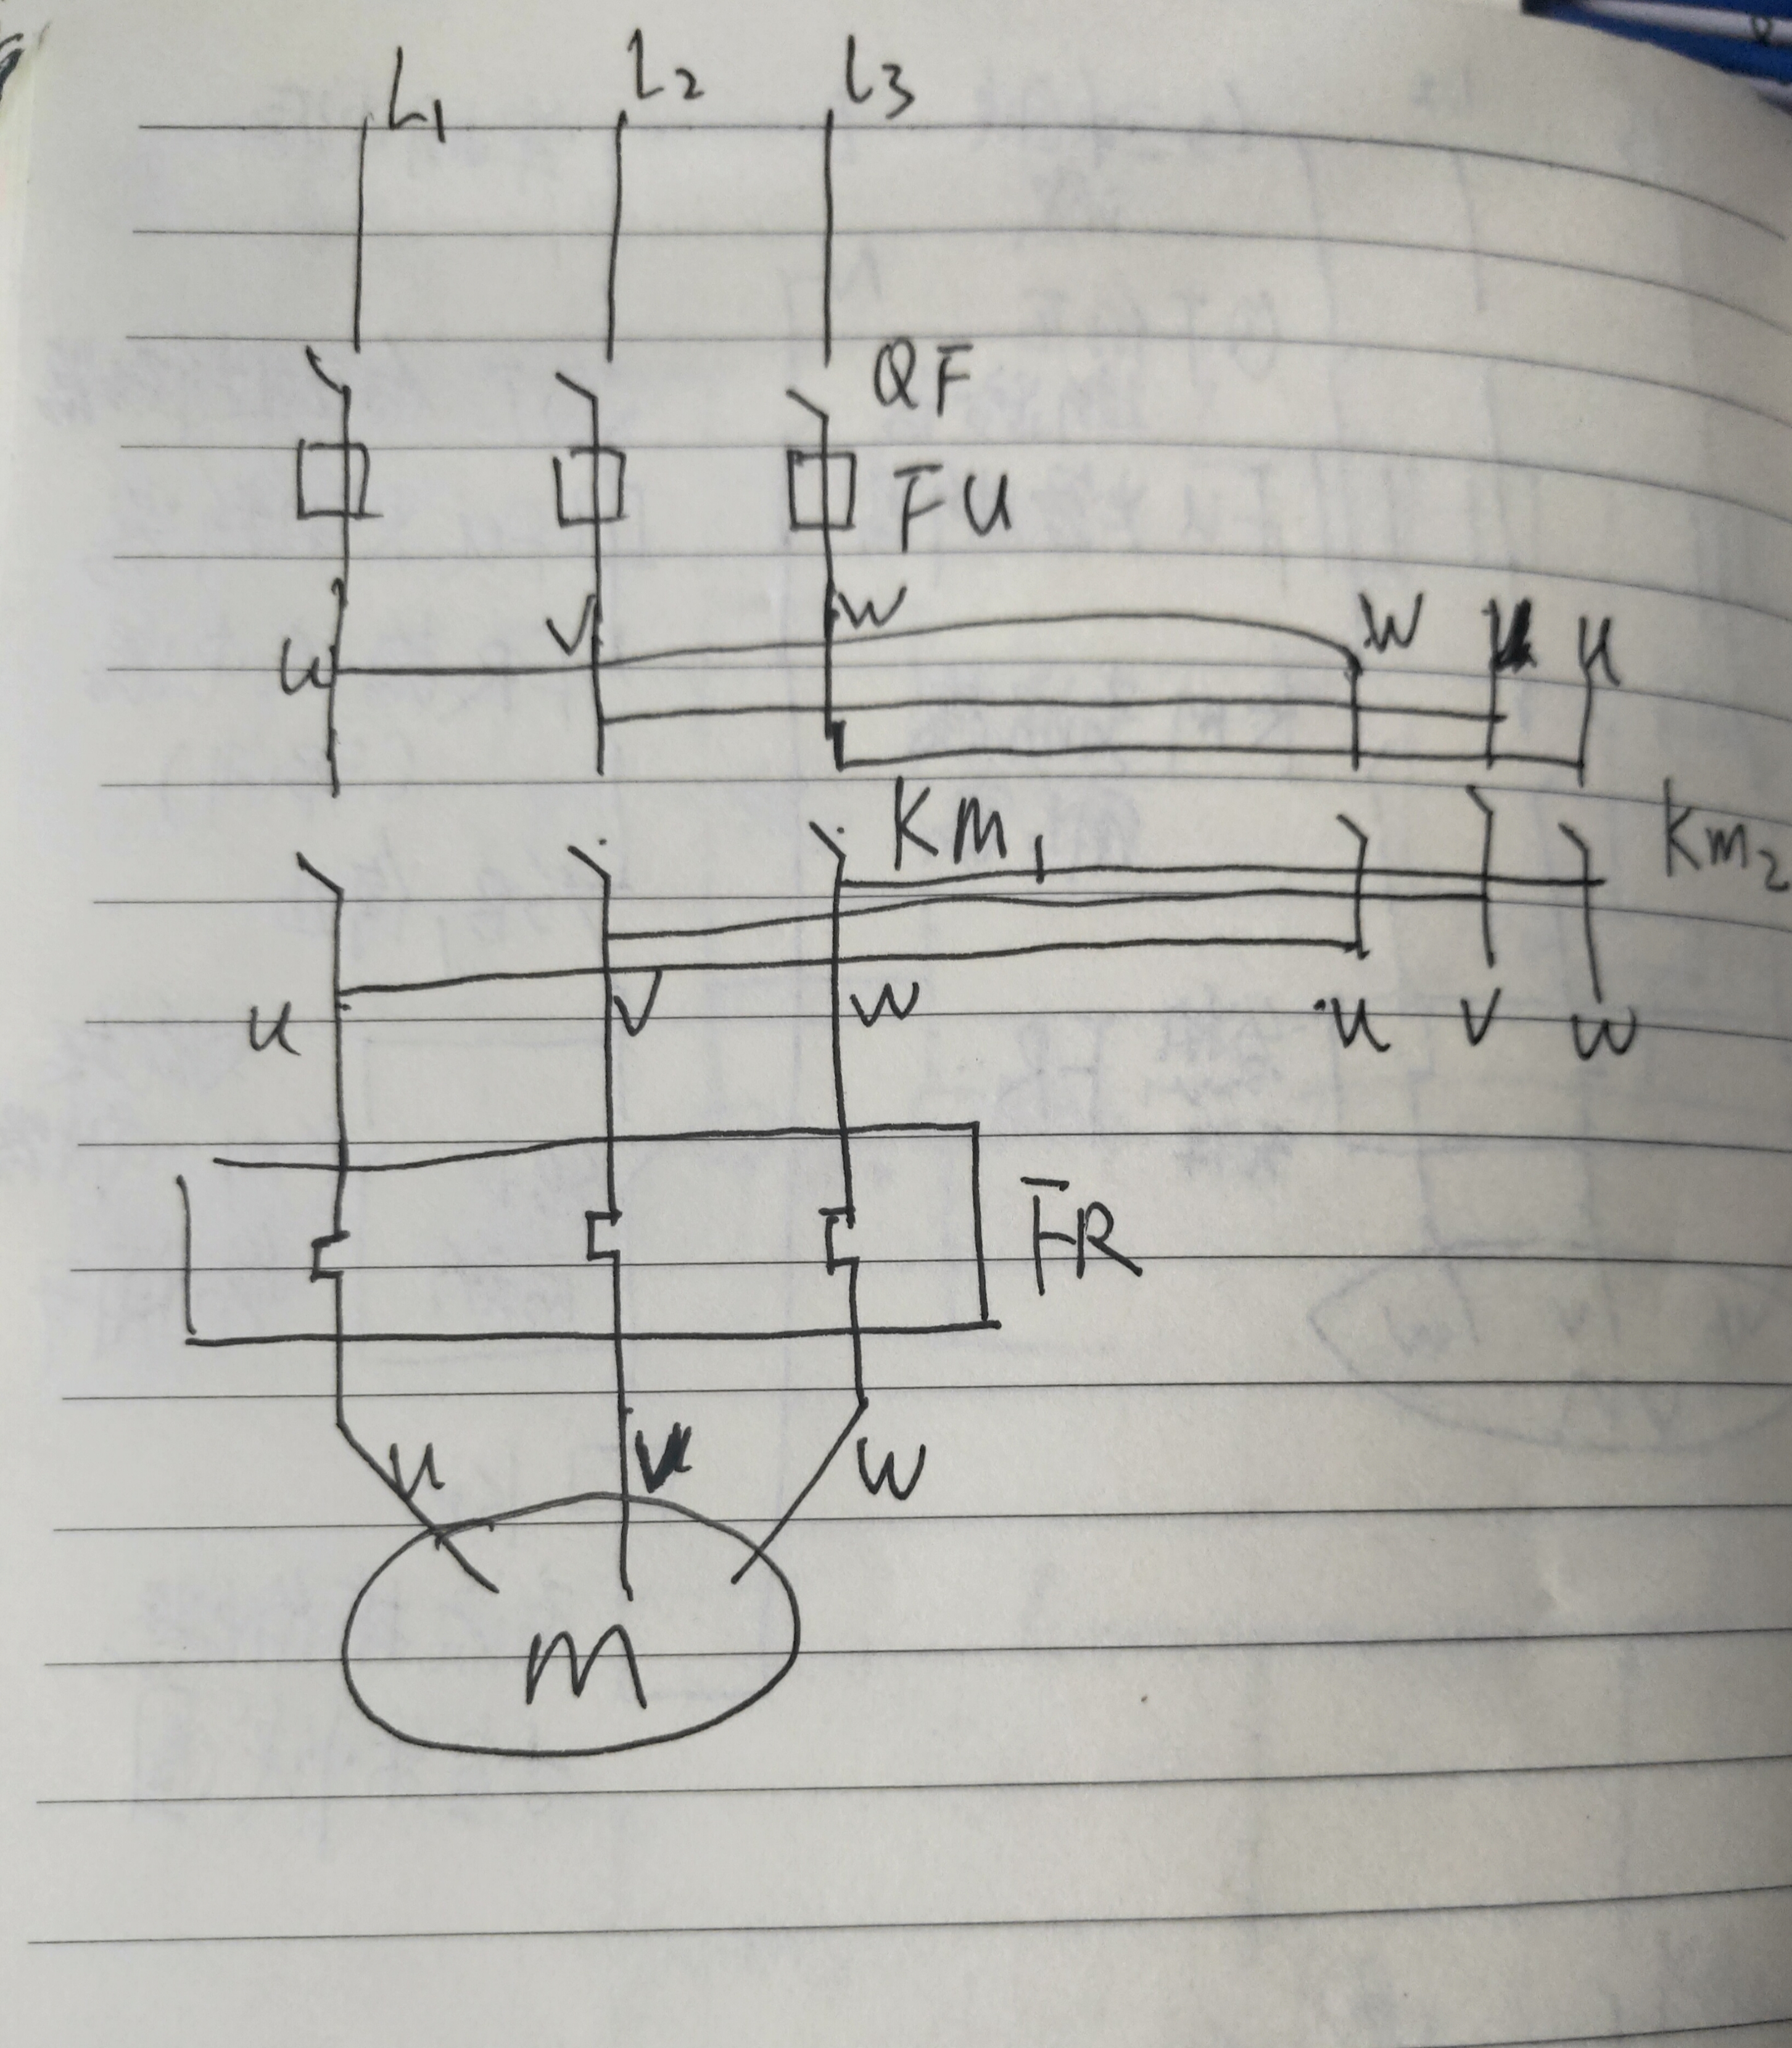 L1 L2 L3
QF
FU
U V W W V U
KM1 KM2
U V W U V W
FR
U V W
M